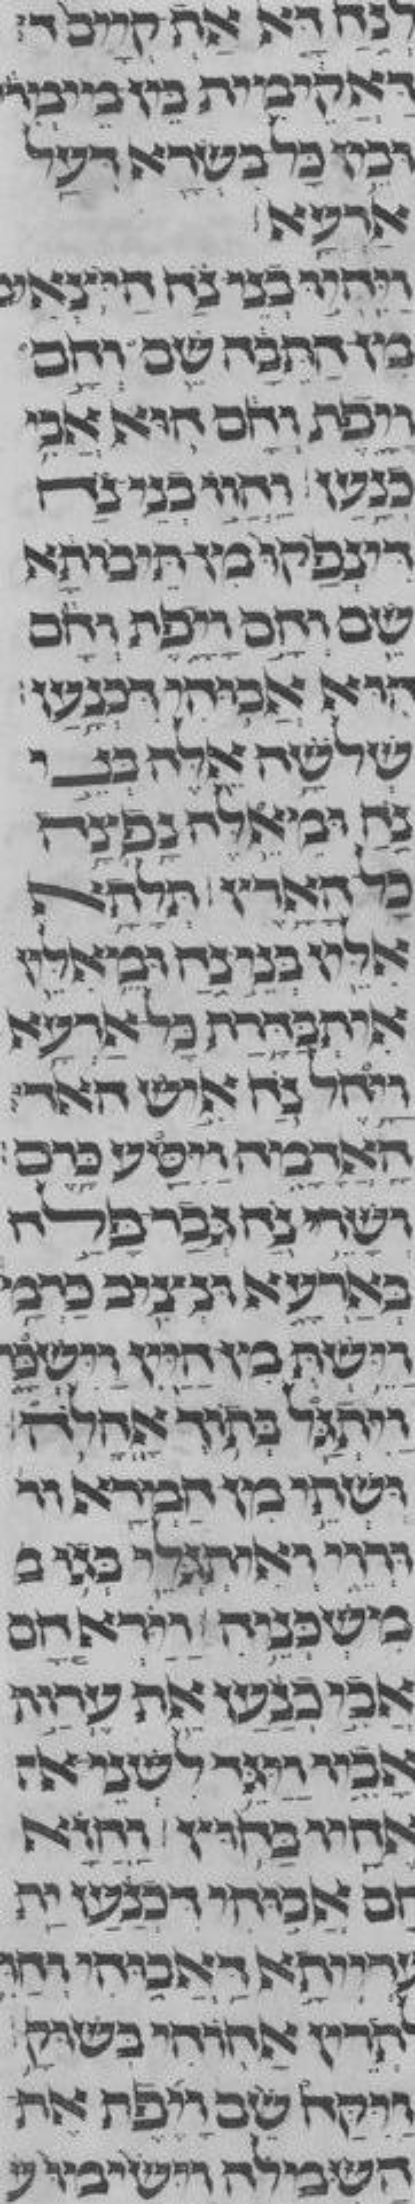 לנח דא את קיים ד
דאקימית בין מימרי
ובין כל בשרא דעל
ארעא
ויהיו בני נח היצאים
מן התבה שם וחם
ויפת וחם הוא אבי
כנען והוו בני נח
דינפקו מן תיבותא
שם וחם ויפת וחם
הוא אבוהי דכנען
שלשה אלה בני
נח ומאלה נפצה
כל הארץ תלתה
אלין בני נח ומאלין
איתבדרת כל ארעא
ויחל נח איש האד
האדמה ויטע כרם
ושרי נח גבר פלח
בארעא ונציב כרמי
וישת מן היין וישכר
ויתגל בתוך אהלה
ושתי מן חמרא ור
ורוי ואיתגלי בגו מ
משכניה וירא חם
אבי כנען את ערות
אביו ויגד לשני אח
אחיו בחוץ וחזא
חם אבוהי דכנען ית
ערייתא דאבוהי וחוי
לתרין אחוהי בשוק
ויקח שם ויפת את
השמלה וישימו ע